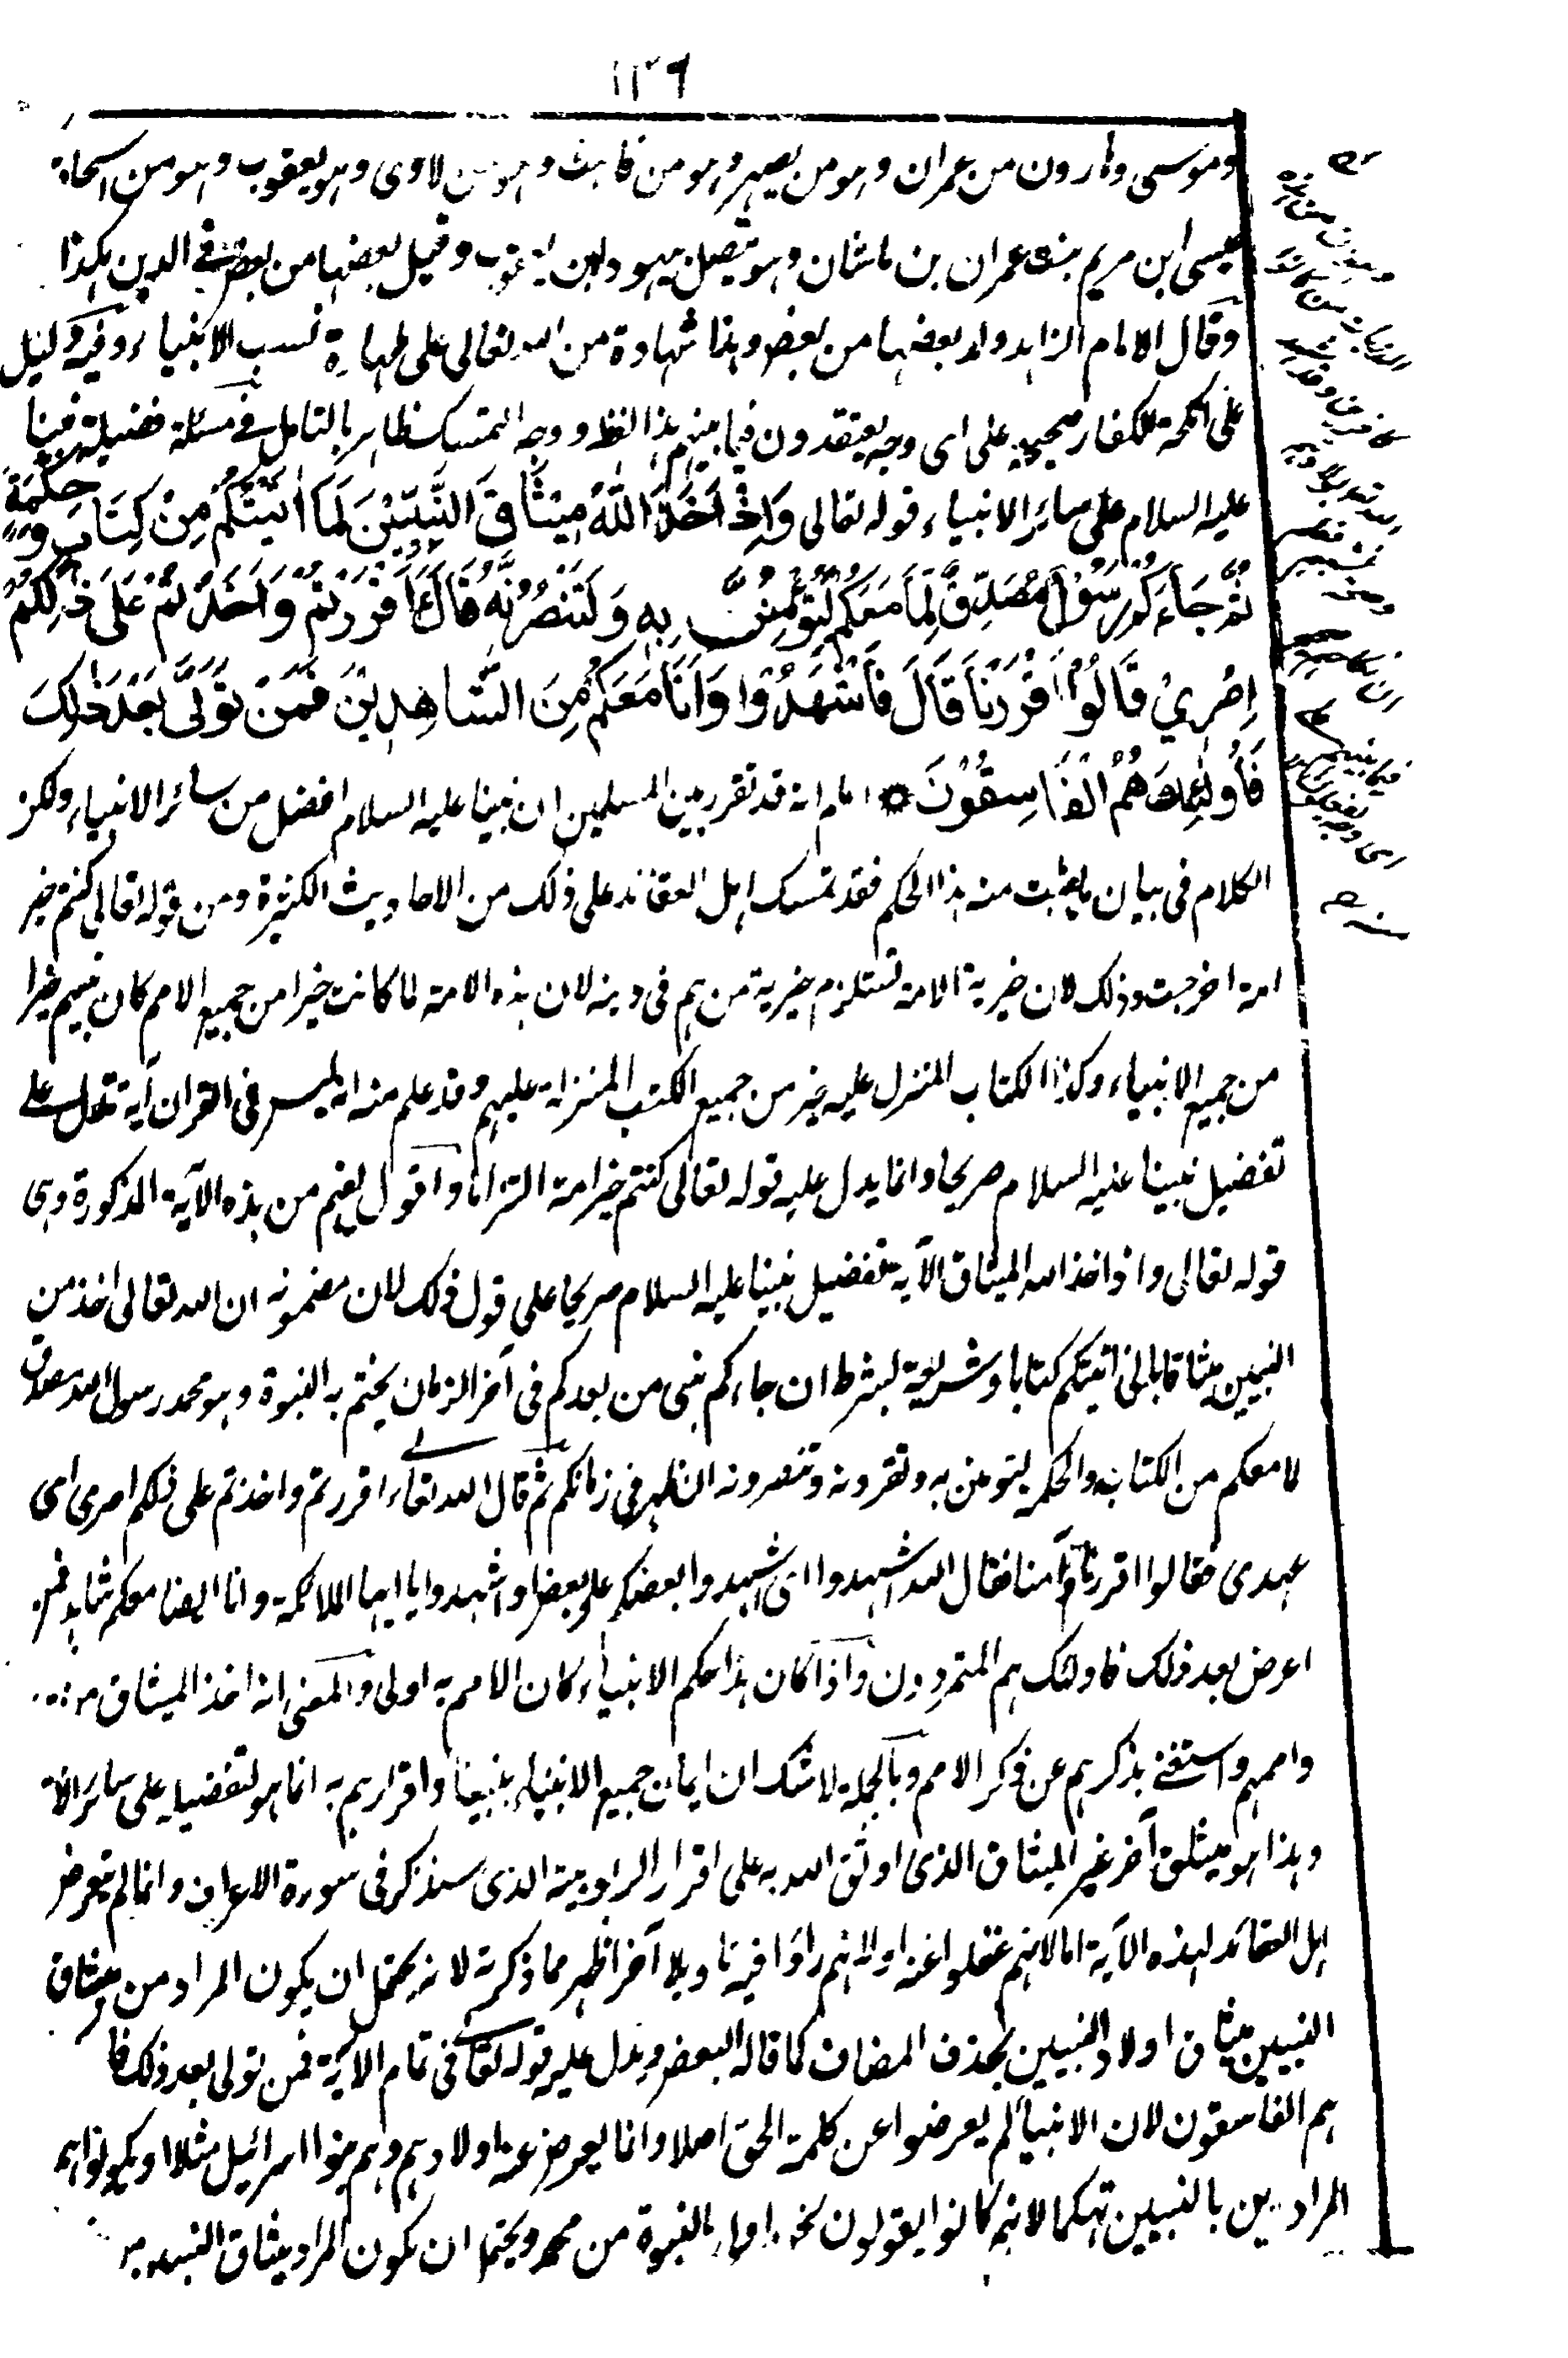 ١٢٦
وموسى وهارون من عمران وهو من يصهر وهو من قاهث وهو من لاوى وهو يعقوب وهو من اسحاق
عيسى ابن مريم بنت عمران بن ماثان وهو يتصل بيهودا بن يعقوب وقيل بعضها من بعض في الدين هكذا
وقال الامام الزاهد ولد بعضها من بعض وهذا شهادة من الله تعالى على طهارة نسب الانبياء وفيه دليل
على انكحة الكفار صحيحة على اى وجه يعتقدون فيما بينهم هذا لفظه ووجه التمسك ظاهر بالتامل في مسئلة فضيلة نبينا
عليه السلام على سائر الانبياء قوله تعالى وَاِذْ اَخَذَ اللّٰهُ مِيْثَاقَ النَّبِيّٖنَ لَمَا اٰتَيْتُكُمْ مِنْ كِتَابٍ وَّحِكْمَةٍ
ثُمَّ جَاءَكُمْ رَسُوْلٌ مُصَدِّقٌ لِمَا مَعَكُمْ لَتُؤْمِنُنَّ بِهٖ وَلَتَنْصُرُنَّهٗ قَالَ ءَاَقْرَرْتُمْ وَاَخَذْتُمْ عَلٰى ذٰلِكُمْ
اِصْرِيْ قَالُوْا اَقْرَرْنَا قَالَ فَاشْهَدُوْا وَاَنَا مَعَكُمْ مِنَ الشَّاهِدِيْنَ فَمَنْ تَوَلّٰى بَعْدَ ذٰلِكَ
فَاُولٰئِكَ هُمُ الْفَاسِقُوْنَ ۞ اعلم انه قد تقرر بين المسلمين ان نبينا عليه السلام افضل من سائر الانبياء ولكن
الكلام فى بيان ما يثبت منه هذا الحكم فقد تمسك اهل العقائد على ذلك من الاحاديث الكثيرة ومن قوله تعالى كنتم خير
امة اخرجت وذلك لان خيرية الامة تستلزم خيرية من هم فى دينه لان هذه الامة لما كانت خيرا من جميع الامم كان نبيهم خيرا
من جميع الانبياء وكذا الكتاب المنزل عليه خير من جميع الكتب المنزلة عليهم وقد علم منه انه ليس فى القران آية تدل على
تفضيل نبينا عليه السلام صريحا وانما يدل عليه قوله تعالى كنتم خير امة التزاما واقول يفهم من هذه الآية المذكورة وهى
قوله تعالى واذ اخذ الله الميثاق الآية تفضيل نبينا عليه السلام صريحا على قول ذلك لان مضمونه ان الله تعالى اخذ من
النبيين ميثاقا بانى اتيتكم كتابا وشريعة بشرط ان جاءكم نبى من بعدكم فى آخر الزمان يختم به النبوة وهو محمد رسول الله مصدق
لما معكم من الكتاب والحكمة لتومنن به وتقرونه وتنصرونه ان ظهر فى زمانكم ثم قال الله تعالى ءاقررتم واخذتم على ذلكم اصرى اى
عهدى فقالوا اقررنا وآمنا فقال الله اشهدوا اى اشهدوا بعضكم على بعض او اشهدوا يا ايها الملائكة وانا ايضا معكم شاهد فمن
اعرض بعد ذلك فاولئك هم المتمردون واذا كان هذا حكم الانبياء كان الامم به اولى والمعنى انه اخذ الميثاق من
واممهم واستغنى بذكرهم عن ذكر الامم وبالجملة لا شك ان ايمان جميع الانبياء بنبينا واقرارهم به انما هو لتفضيله على سائر
وهذا هو ميثاق آخر غير الميثاق الذى اوثق الله به على اقرار الربوبية الذى سنذكر فى سورة الاعراف وانما لم يتعرض
اهل العقائد لهذه الآية اما لانهم غفلوا عنه او لانهم راوا فيه تاويلا آخر اظهر مما ذكرته لانه يحتمل ان يكون المراد من ميثاق
النبيين ميثاق اولاد النبيين بحذف المضاف كما قاله البعض ويدل عليه قوله تعالى فى تمام الآية فمن تولى بعد ذلك فا
هم الفاسقون لان الانبياء لم يعرضوا عن كلمة الحق اصلا وانما يعرض عنه اولادهم وهم بنوا اسرائيل مثلا او يكونوا هم
المرادين بالنبيين تهكما لانهم كانوا يقولون نحن اولى بالنبوة من محمد ويحتمل ان يكون المراد ميثاق النبيين